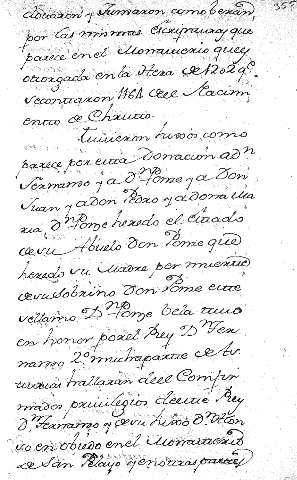 dotaron y firmaron como veran,
por las mismas escripturas que
parece en el Monasterio que es
otorgada en la Hera de 1202 q.e
se contaron 1164 del Nacim
iento de Christo.
Tuvieron hixos como
parece por esta Donacion a dn
Fernando y a Dn Pome y a Don
Juan y a don Pedro y a dona Ma
ria, Dn Pome heredo el Estado
de su Abuelo Don Pome que
heredo su Madre por muerte
de su sobrino Don Pome este
se llamo Dn Pome bela tuvo
en honor por el Rey Dn Fer
nando 2º mucha parte de As
turias hallaran de el Confir
mados privilegios de este Rey
Dn Fernando y de su hixo Dn Alon
so en obiedo en el Monasterio
de San Pelayo y en otras partes